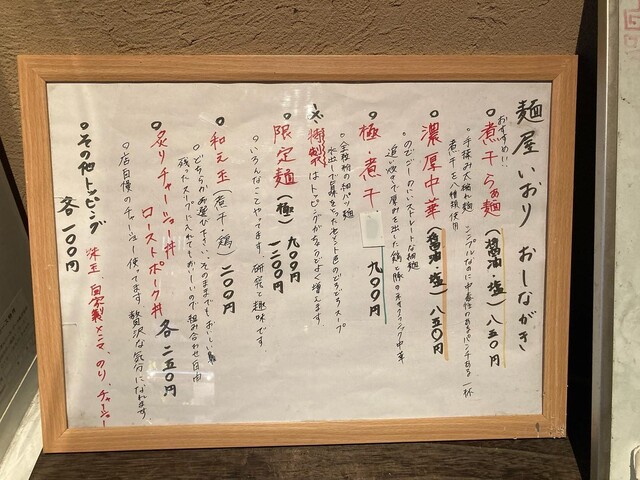 麺屋 いおり おしながき
おすすめ!!
煮干らぁ麺(醤油・塩)八五〇円
・手揉み太縮れ麺 シンプルなのに中毒性のあるパンチある一杯
煮干を八種類使用
濃厚中華(醤油・塩)八五〇円
・のどごしのいいストレートな細麺
追い炊きで厚みを出した鶏と豚のネオクラシック中華
極・煮干 九〇〇円
・全粒粉の細パツ麺
水出しで旨味をとったセメント色のどろどろスープ
特製はトッピングがちょうどよく増えます。
限定麺(極)九〇〇円
一二〇〇円
・いろんなことやってます。研究と趣味です。
和え玉(煮干・鶏)二〇〇円
・どちらかお選び下さい、そのままでもおいしい
残ったスープに入れてもおいしいので組み合わせ自由
炙りチャーシュー丼
ローストポーク丼 各二五〇円
・店自慢のチャーシュー使ってます 贅沢な気分になれます
その他トッピング 味玉、自家製メンマ、のり、チャーシュー
各一〇〇円